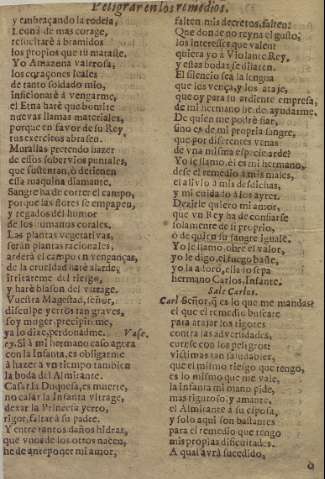 Peligrar en los remedios.
y embraçando la rodela,
Leona de mas corage,
resucitarè a bramidos
los propios que tu mataste.
Yo Amazona valerosa,
los coraçones leales
de tanto soldado mio,
inficionarè à vengarme,
el Etna harè que bomite
nuevas llamas materiales,
porque en favor de su Rey
tus exercitos abrasen.
Murallas pretendo hazer
de essos sobervios puntales,
que sustentan, ò detienen
esta maquina diamante.
Sangre ha de correr el campo,
porque las flores se empapen,
y regados del humor
de los humanos corales.
Las plantas vegetativas,
seràn plantas racionales,
arderà el campo en venganças,
de la crueldad harè alarde,
irritareme del riesgo,
y harè blason del vltrage.
Vuestra Magestad, señor,
disculpe yerros tan graves,
soy muger, precipiteme,
ya lo dixe, perdonadme. Vase.
Rey. Si à mi hermano caso agora
con la Infanta, es obligarme
à hazer à vn tiempo tambien
la boda del Almirante.
Casar la Duquesa, es muerte,
no casar la Infanta vltrage,
dexar la Princesa yerro,
rigor, faltar à su padre.
Y entre tantos daños hidras,
que vnos de los otros nacen,
he de anteponer mi amor,
falten mis decretos, falten:
Que donde no reyna el gusto,
los interesses que valen?
quiera yo à Violante Rey,
y estas bodas se dilaten.
El silencio sea la lengua
que los vença, y los ataje,
que oy para tu ardiente empresa,
de mi hermano he de ayudarme.
De quien me podrè fiar,
sino es de mi propria sangre,
que por diferentes venas
de vna misma especie arde?
Yo le llamo, èl es mi hermano,
desele remedio à mis males,
el alivio à mis desdichas,
y mi cuidado à los ayres.
Dezirle quiero mi amor,
que vn Rey ha de confiarse
solamente de si proprio,
ò de quien su sangre iguale.
Yo le llamo, obre el valor,
yo le digo, el fuego baste,
yo la adoro, ella lo sepa
hermano Carlos, Infante.
Sale Carlos.
Carl. Señor, q es lo que me mandas?
el que el remedio buscare
para atajar los rigores
contra las adversidades,
correse con los peligros
vidimas tan saludables,
que el mismo riesgo que tengo,
es lo mismo que me vale,
la Infanta mi mano pide,
mas rigurosa, y amante,
el Almirante à su esposa,
y solo aqui son bastantes
para el remedio que tengo
mis propias dificultades.
A qual avrà sucedido,